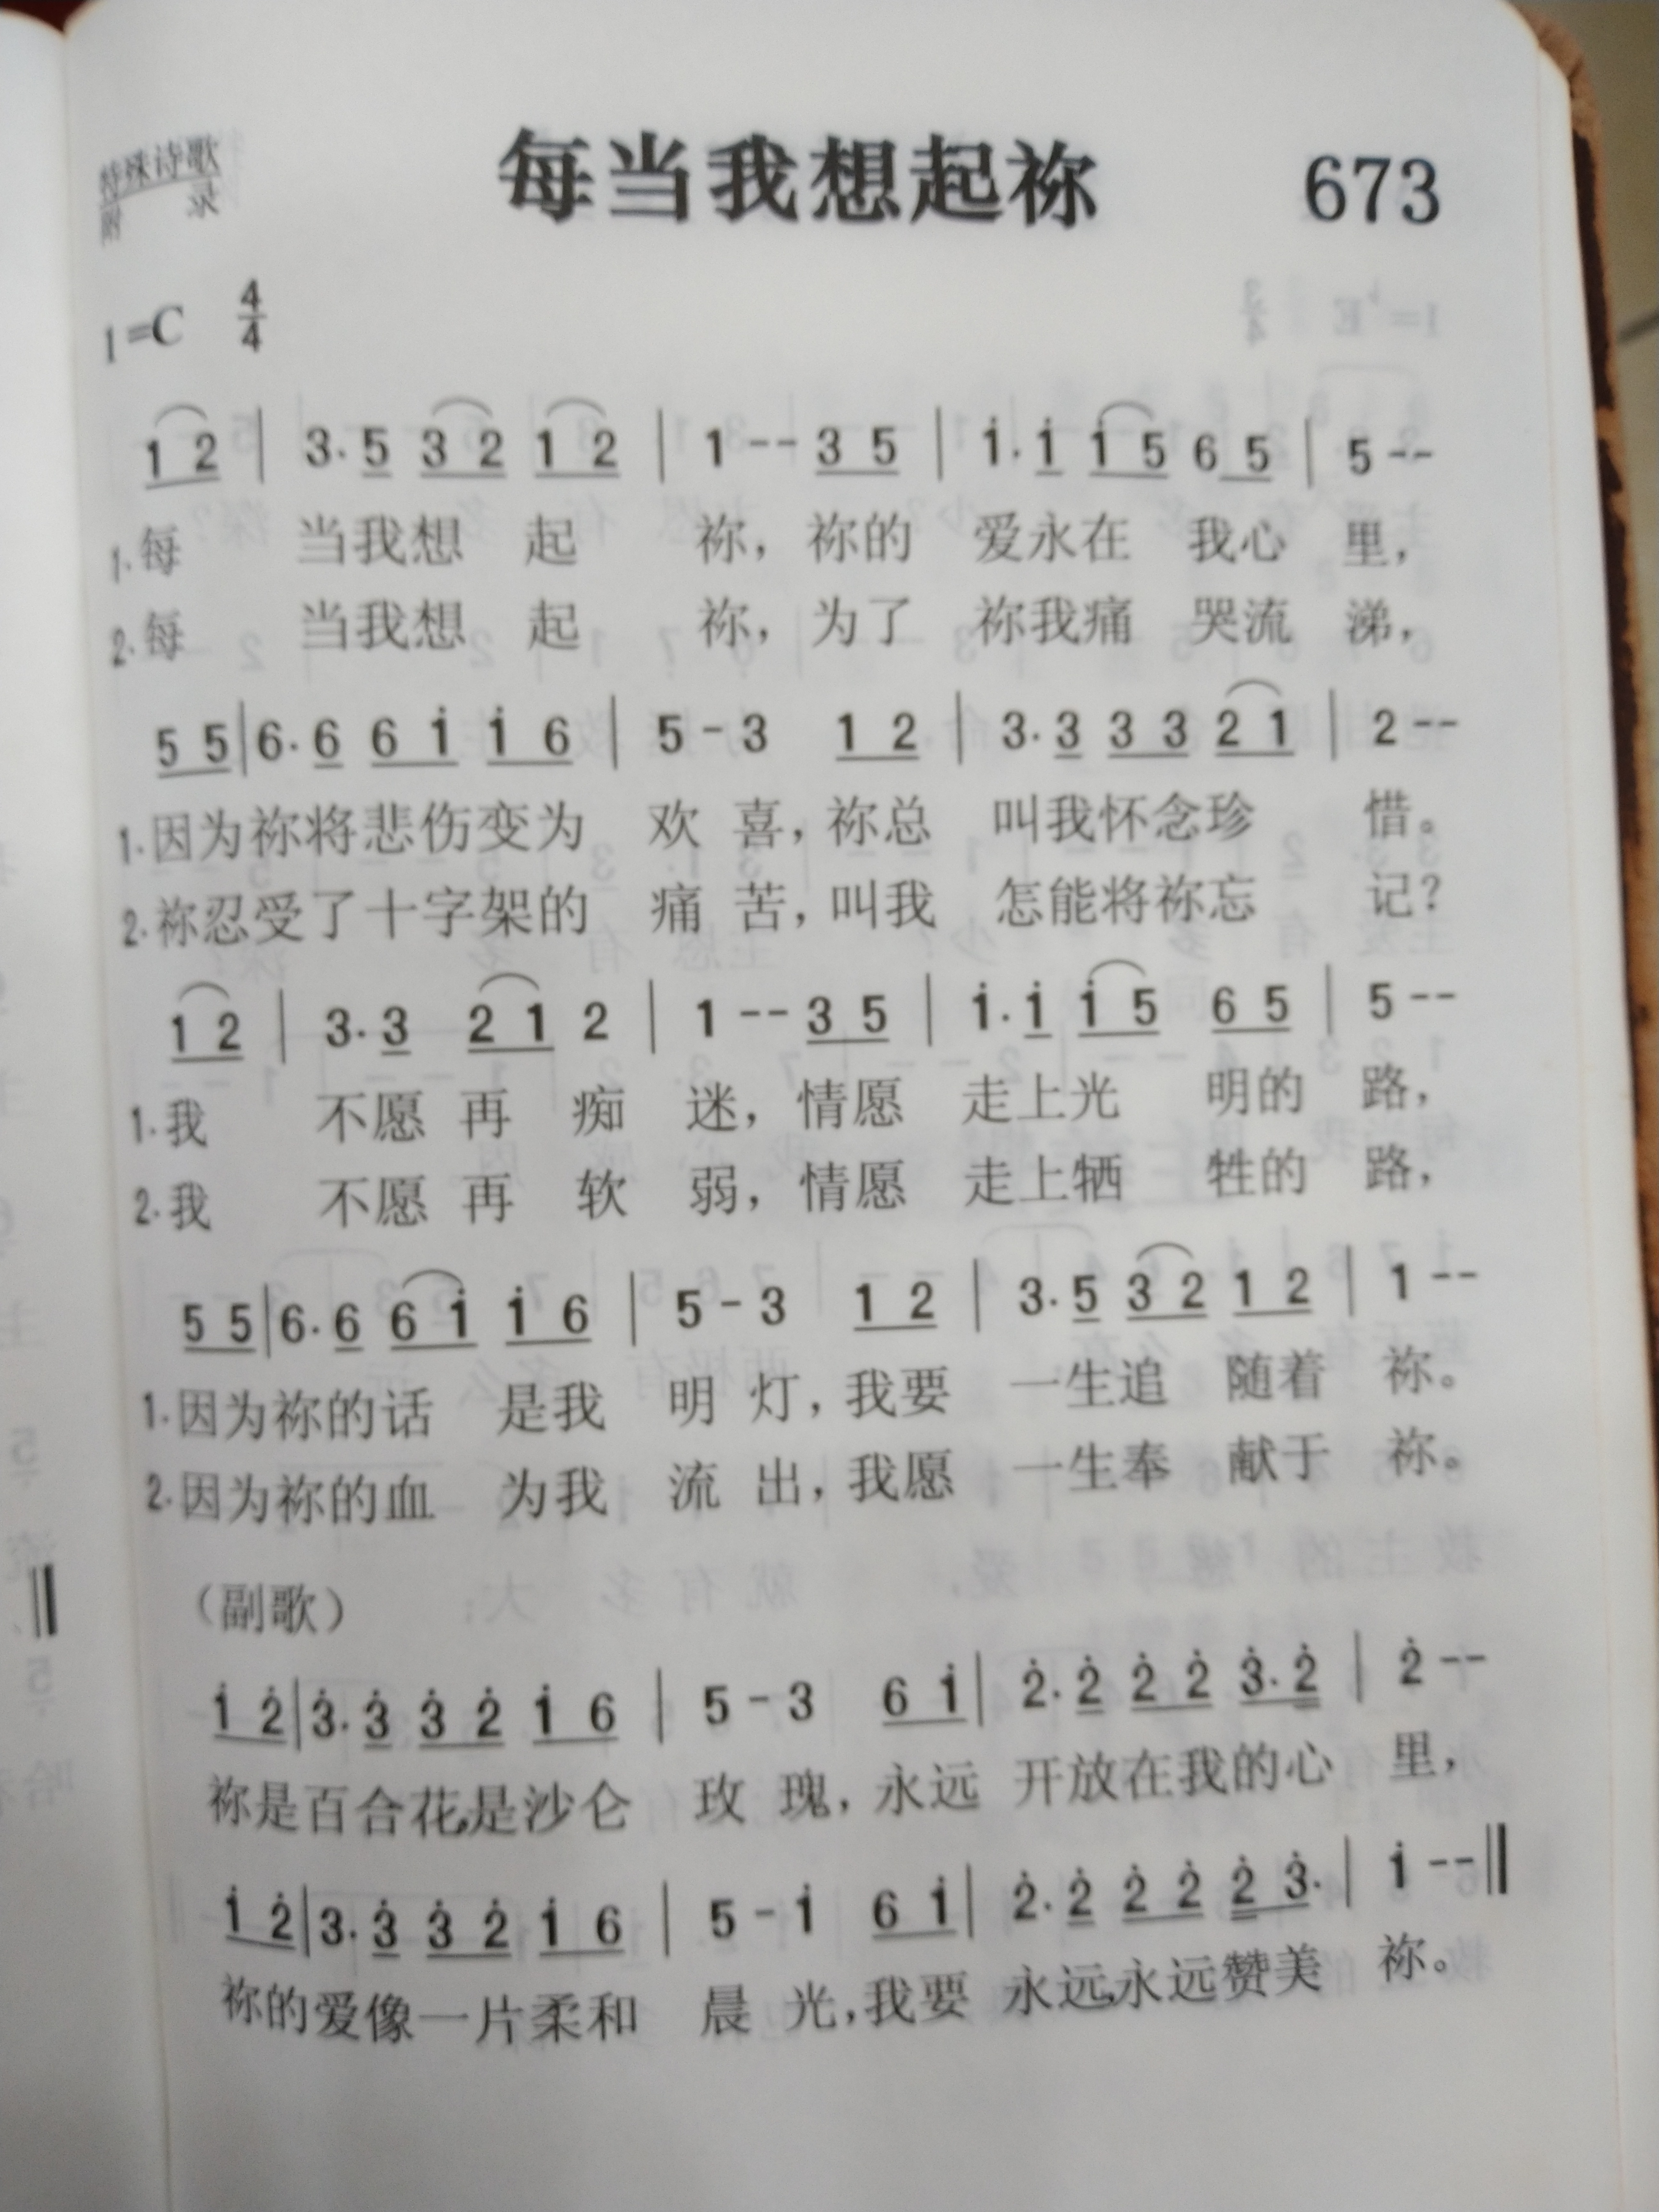 特殊诗歌
附 录
每当我想起祢 673
1=C 4/4
1 2 | 3. 5 3 2 1 2 | 1 -- 3 5 | 1. 1 1 5 6 5 | 5 --
1.每 当我想 起 祢，祢的 爱永在 我心 里，
2.每 当我想 起 祢，为了 祢我痛 哭流 涕，
5 5 | 6. 6 6 1 1 6 | 5 - 3 1 2 | 3. 3 3 3 2 1 | 2 --
1.因为祢将悲伤变为 欢 喜，祢总 叫我怀念珍 惜。
2.祢忍受了十字架的 痛 苦，叫我 怎能将祢忘 记？
1 2 | 3. 3 2 1 2 | 1 -- 3 5 | 1. 1 1 5 6 5 | 5 --
1.我 不愿 再 痴 迷，情愿 走上光 明的 路，
2.我 不愿 再 软 弱，情愿 走上牺 牲的 路，
5 5 | 6. 6 6 1 1 6 | 5 - 3 1 2 | 3. 5 3 2 1 2 | 1 --
1.因为祢的话 是我 明 灯，我要 一生追 随着 祢。
2.因为祢的血 为我 流 出，我愿 一生奉 献于 祢。
（副歌）
1 2 | 3. 3 3 2 1 6 | 5 - 3 6 1 | 2. 2 2 2 3. 2 | 2 --
祢是百合花,是沙仑 玫 瑰，永远 开放在我的心 里，
1 2 | 3. 3 3 2 1 6 | 5 - 1 6 1 | 2. 2 2 2 2 3. | 1 --
祢的爱像一片柔和 晨 光，我要 永远,永远赞美 祢。